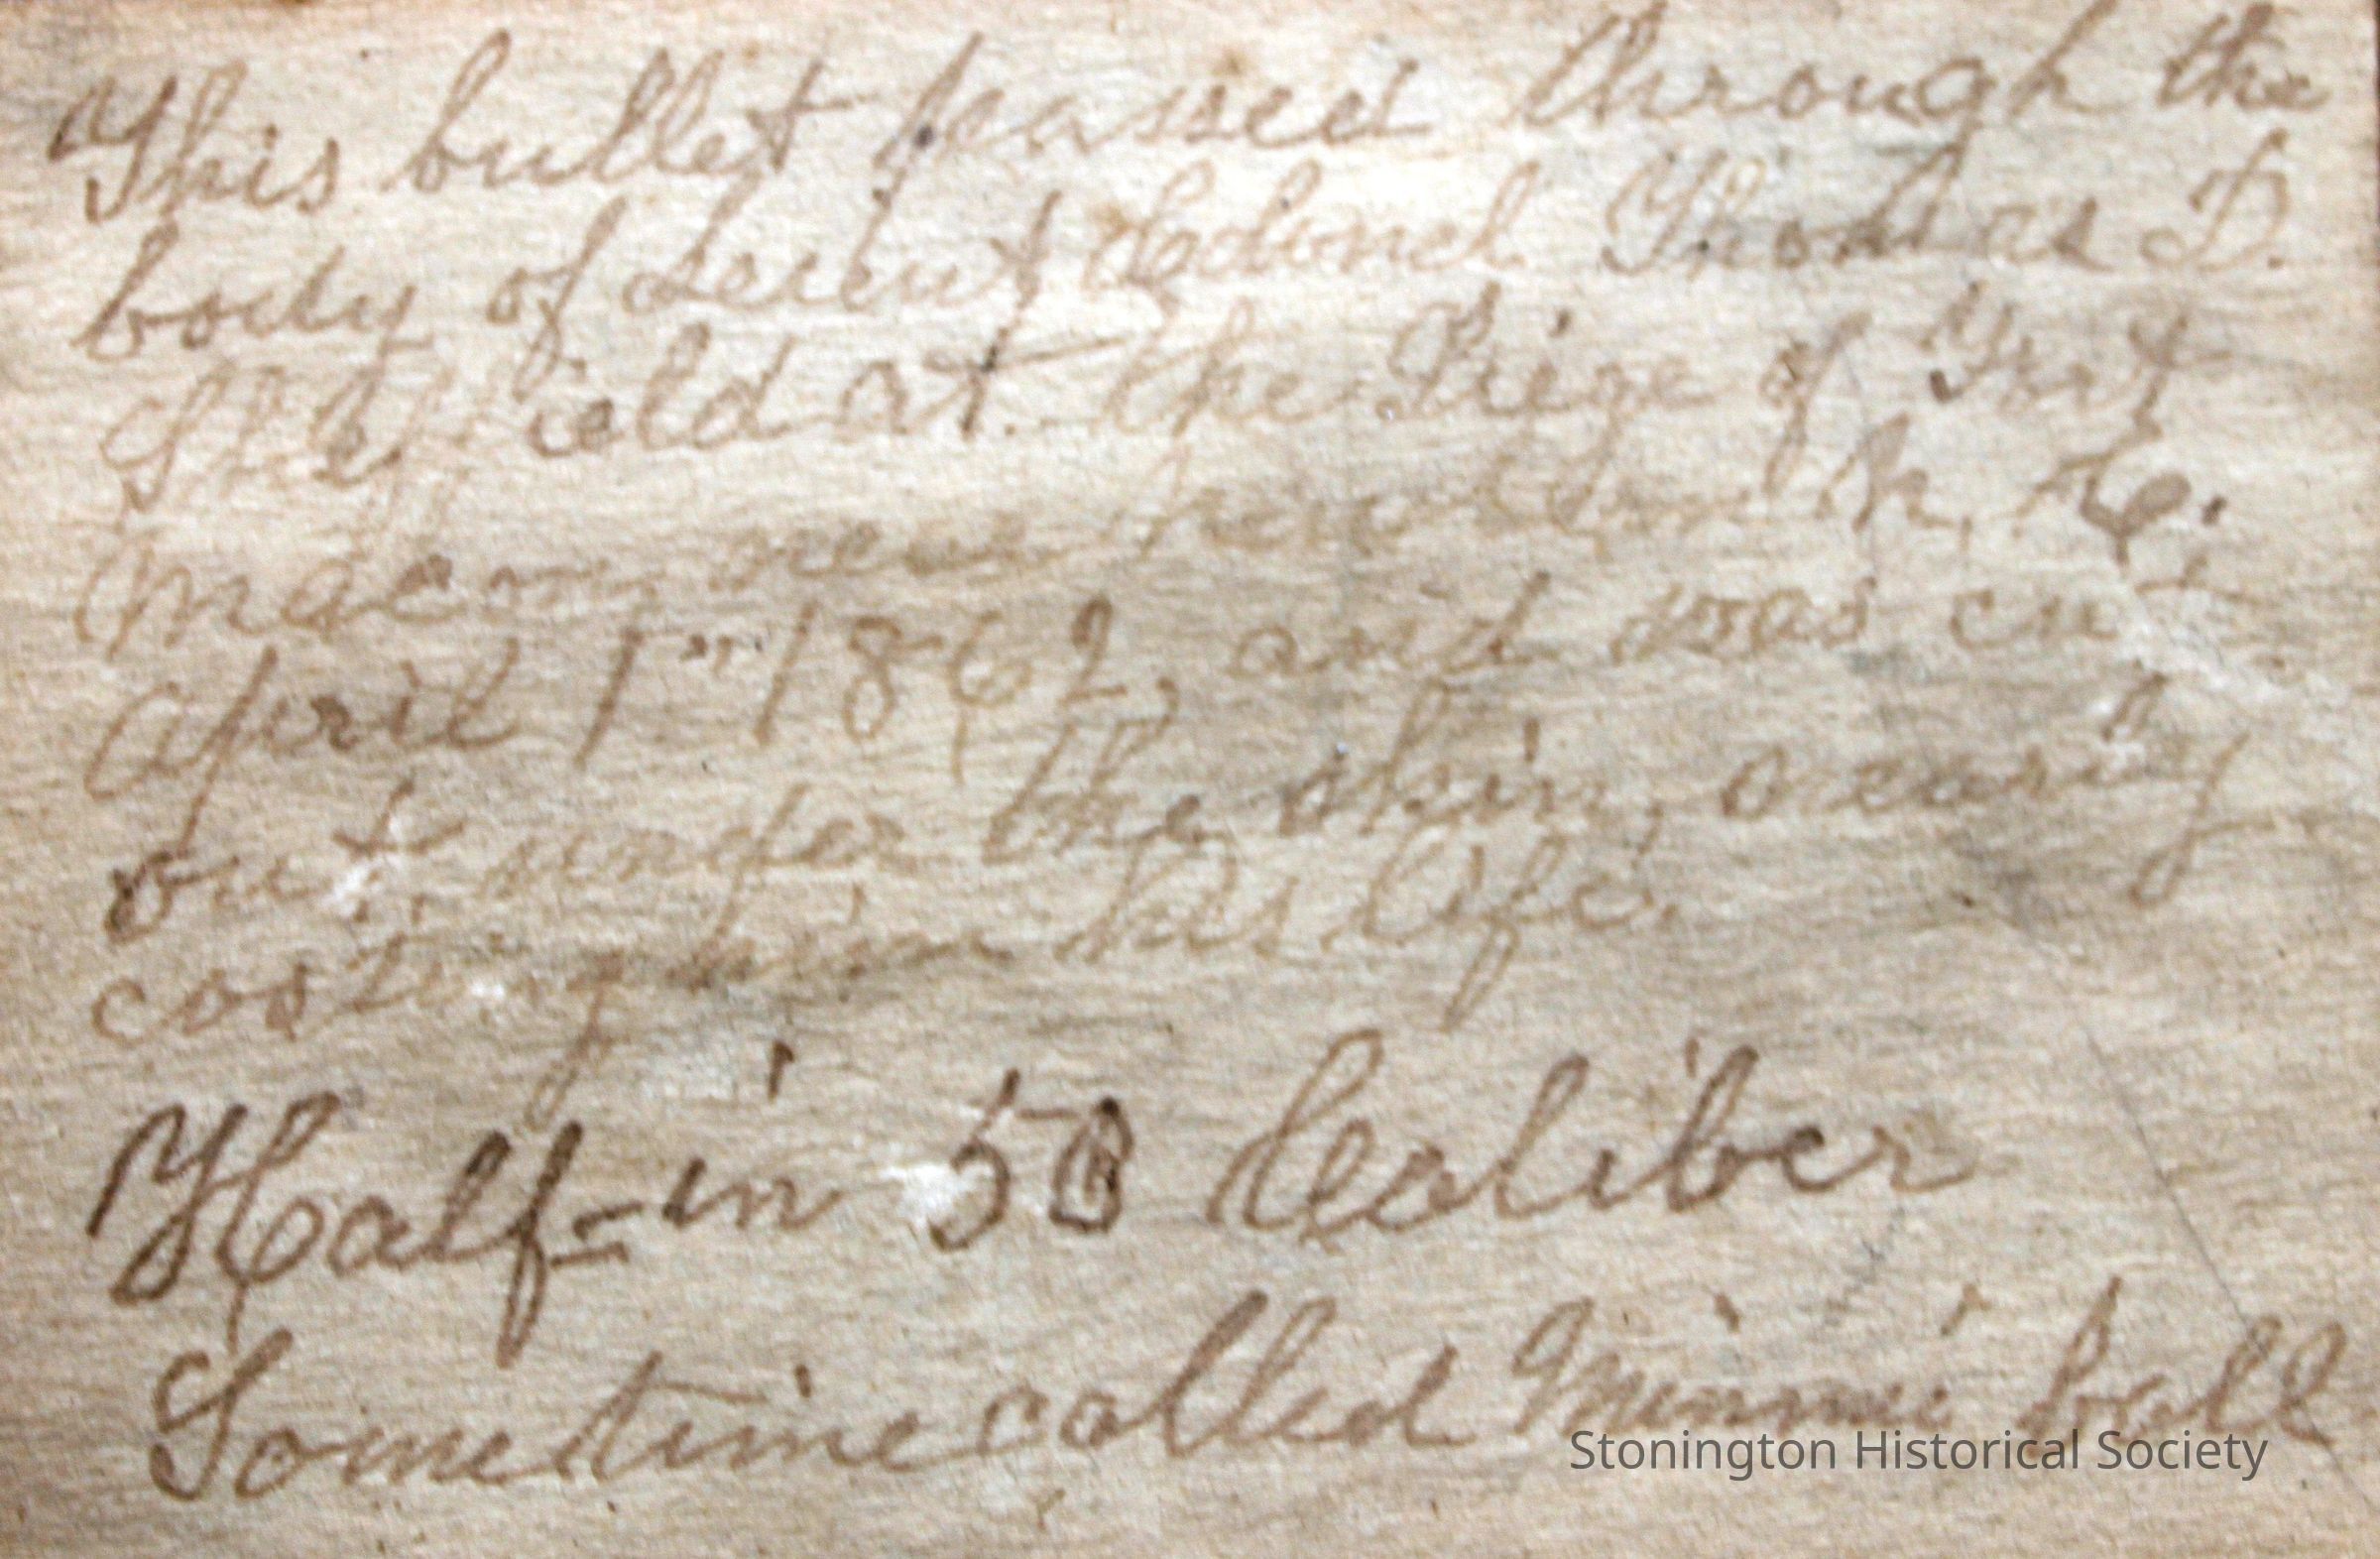 This bullet passed through the
body of Lieut Colonel Thomas D.
Sheffield at the Seige of Fort
Macon, near Beaufort, N. C.
April 1" 1862, and was cut
out under the skin, nearly
costing him his life.
Half-in 50 Caliber
Sometime called Minni ball
Stonington Historical Society